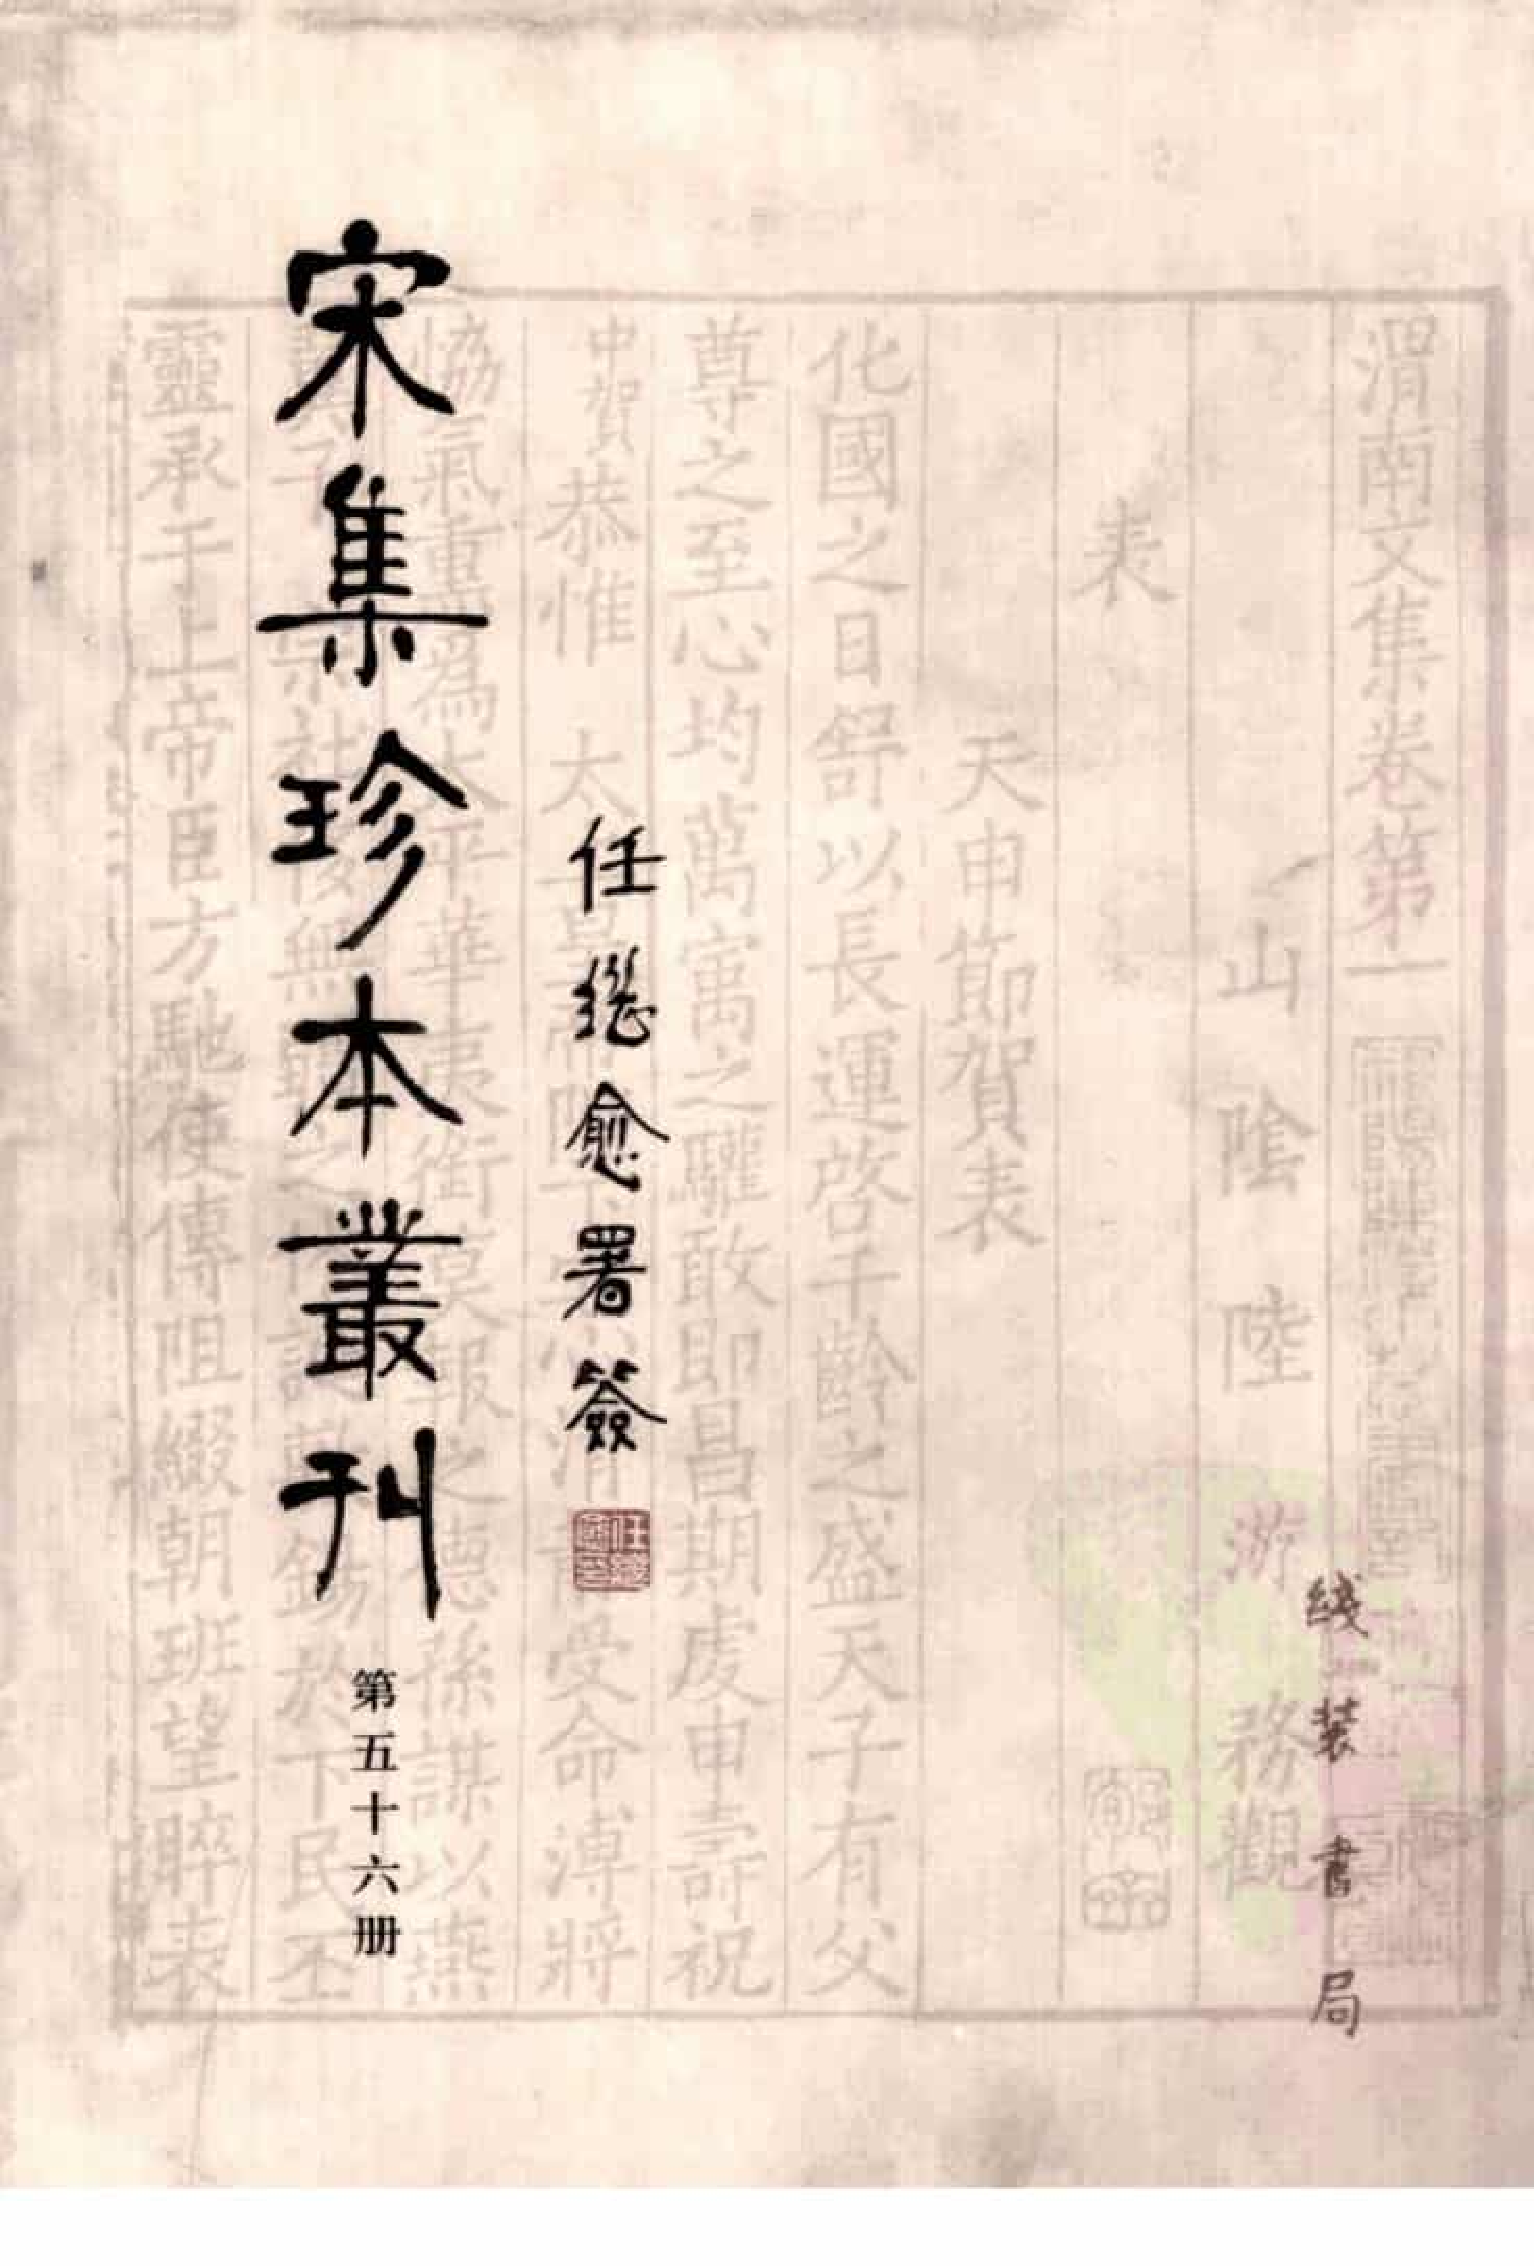 宋集珍本叢刊
第五十六册
任继愈署簽
线装書局
渭南文集卷第一
山陰陸游務觀
表
天申節賀表
化國之日舒以長運啓千齡之盛天子有父
尊之至心均萬寓之驩敢即昌期虔申壽祝
中賀恭惟太
受命溥將
協氣重爲太平華夷銜莫報之德孫謀以燕
於下民丕
靈承于上帝臣方馳使傳阻綴朝班望睟表